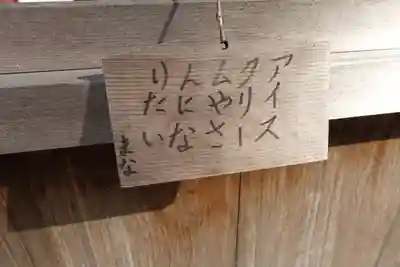 アイス
タリー
ムやさ
んにな
りたい
まな